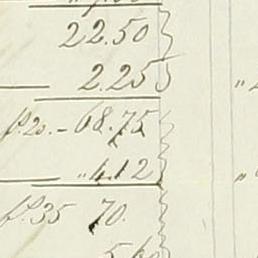 22.50
2.25
f.20.- 68.75
„ 4.12
f.35 70.